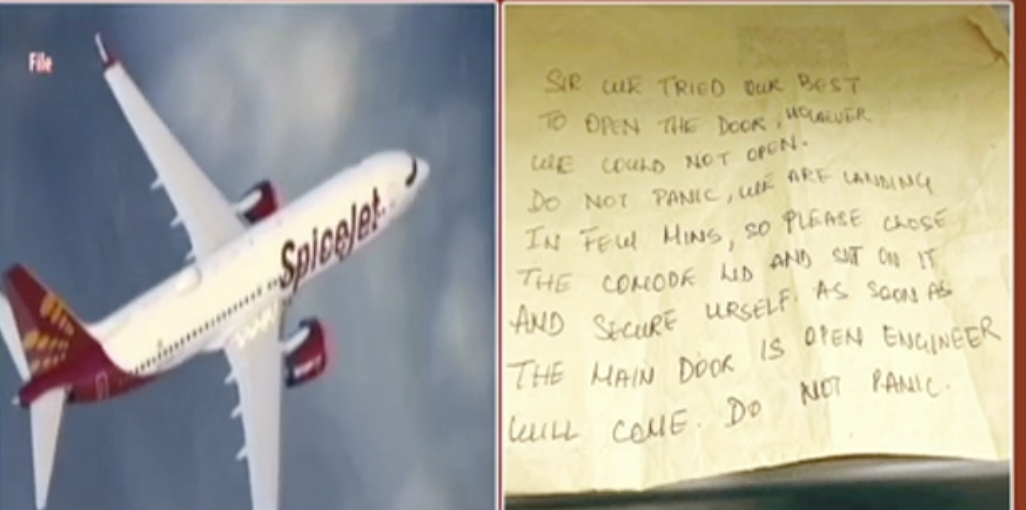 File
SpiceJet
SIR WE TRIED OUR BEST
TO OPEN THE DOOR, HOWEVER
WE COULD NOT OPEN.
DO NOT PANIC, WE ARE LANDING
IN FEW MINS, SO PLEASE CLOSE
THE COMODE LID AND SIT ON IT
AND SECURE URSELF. AS SOON AS
THE MAIN DOOR IS OPEN ENGINEER
WILL COME. DO NOT PANIC.